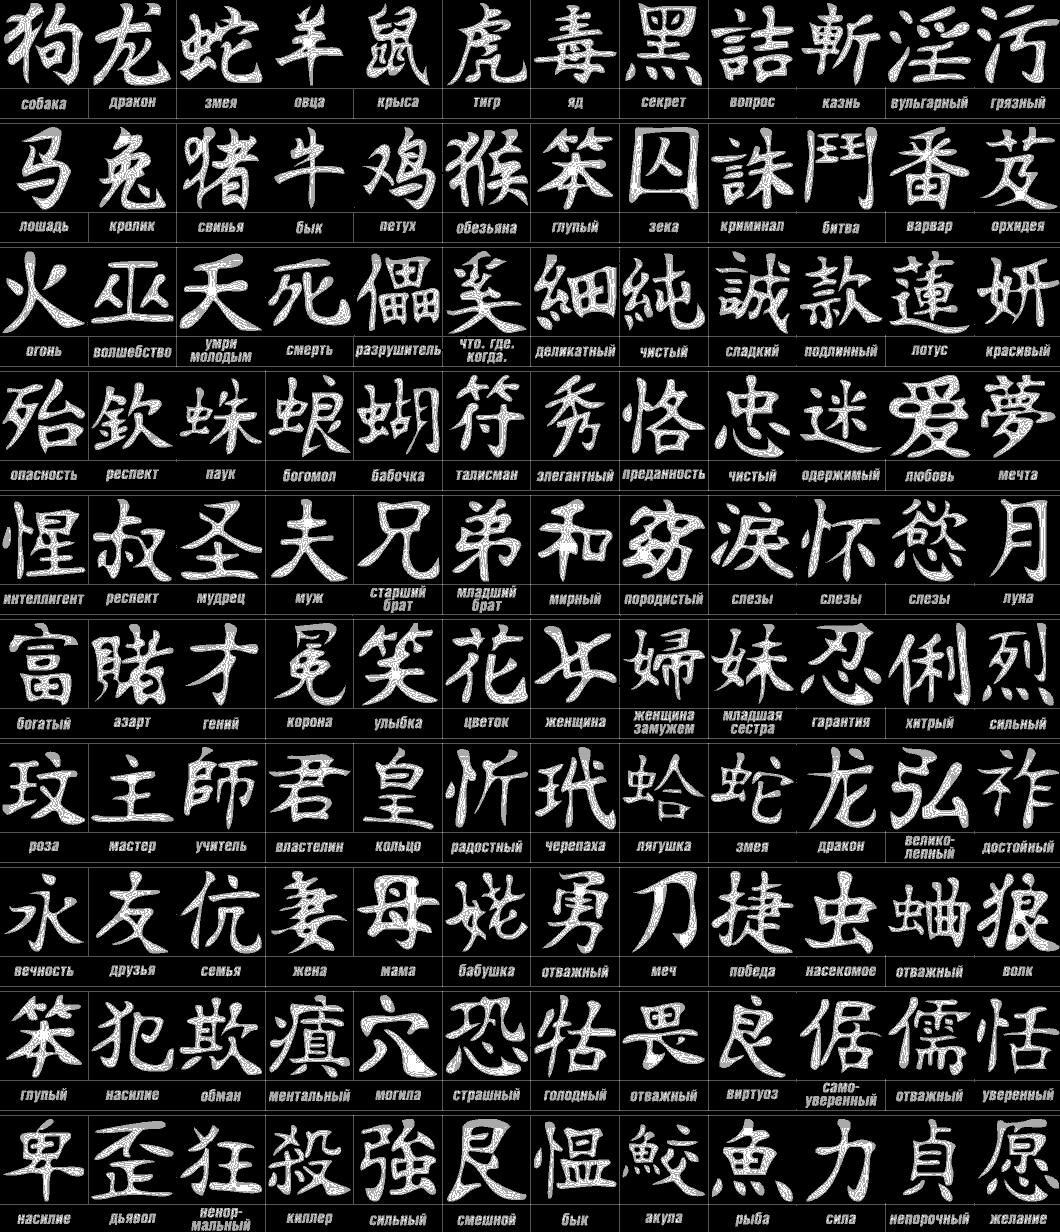 狗 龙 蛇 羊 鼠 虎 毒 黑 詰 斬 淫 污
собака дракон змея овца крыса тигр яд секрет вопрос казнь вульгарный грязный
马 兔 猪 牛 鸡 猴 笨 囚 誅 鬥 番 芨
лошадь кролик свинья бык петух обезьяна глупый зека криминал битва варвар орхидея
火 巫 夭 死 儡 奚 細 純 誠 款 蓮 妍
огонь волшебство умри молодым смерть разрушитель что. где. когда. деликатный чистый сладкий подлинный лотус красивый
殆 欽 蛛 蜋 蝴 符 秀 恪 忠 迷 爱 夢
опасность респект паук богомол бабочка талисман элегантный преданность чистый одержимый любовь мечта
惺 叔 圣 夫 兄 弟 和 窈 淚 怀 慾 月
интеллигент респект мудрец муж старший брат младший брат мирный породистый слезы слезы слезы луна
富 賭 才 冕 笑 花 女 婦 妹 忍 俐 烈
богатый азарт гений корона улыбка цветок женщина женщина замужем младшая сестра гарантия хитрый сильный
玟 主 師 君 皇 忻 玳 蛤 蛇 龙 弘 祚
роза мастер учитель властелин кольцо радостный черепаха лягушка змея дракон велико- лепный достойный
永 友 伉 妻 母 姥 勇 刀 捷 虫 蛐 狼
вечность друзья семья жена мама бабушка отважный меч победа насекомое отважный волк
笨 犯 欺 瘨 穴 恐 牯 畏 良 倨 儒 恬
глупый насилие обман ментальный могила страшный голодный отважный виртуоз само- уверенный отважный уверенный
卑 歪 狂 殺 強 艮 愠 鮫 魚 力 貞 愿
насилие дьявол ненор- мальный киллер сильный смешной бык акула рыба сила непорочный желание